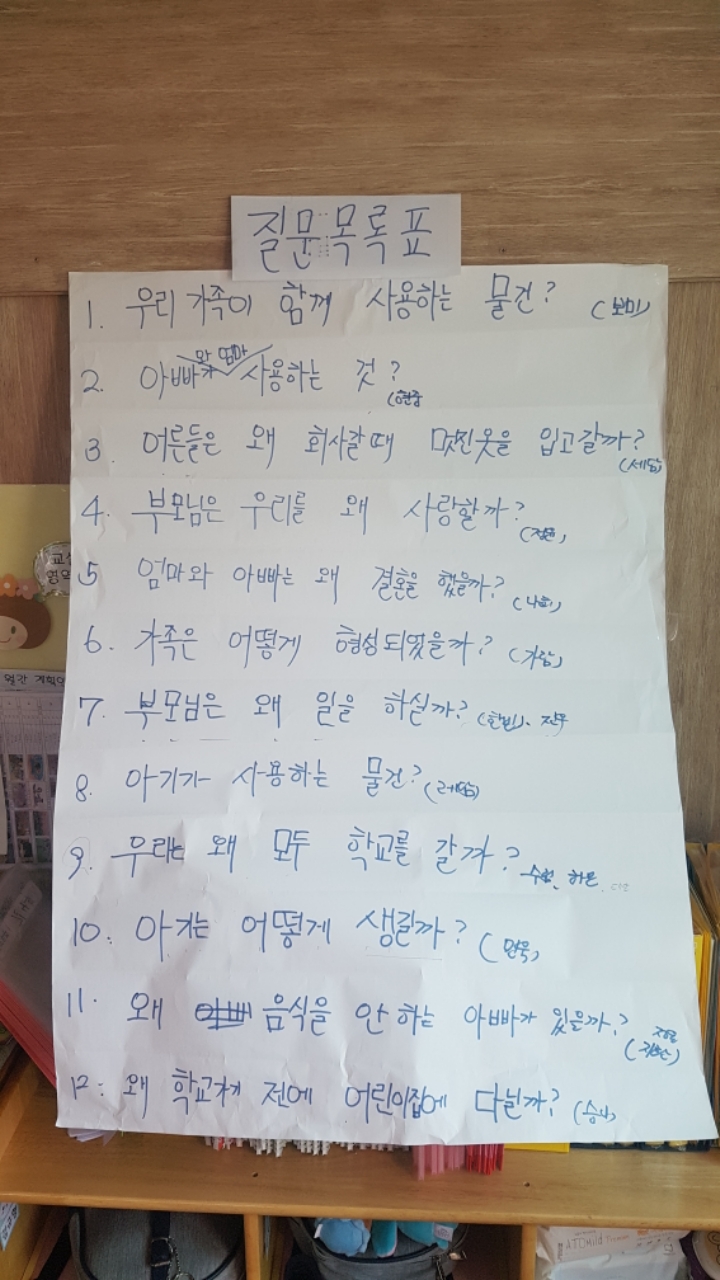 질문 목록표
1. 우리 가족이 함께 사용하는 물건? (보미)
와 엄마
2. 아빠가 사용하는 것?
3. 어른들은 왜 회사갈때 멋진옷을 입고갈까?
4. 부모님은 우리를 왜 사랑할까?
5 엄마와 아빠는 왜 결혼을 했을까?
6. 가족은 어떻게 형성되었을까?
7. 부모님은 왜 일을 하실까?
8. 아기가 사용하는 물건?
9. 우리는 왜 모두 학교를 갈까?
10. 아기는 어떻게 생길까?
11. 왜 음식을 안 하는 아빠가 있을까?
12. 왜 학교가기 전에 어린이집에 다닐까?
교실
영역
월간 계획안
ATOMild